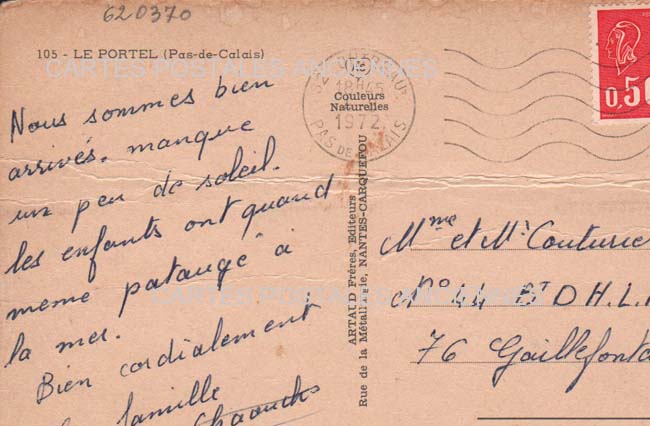 620370
105 - LE PORTEL (Pas-de-Calais)
CARTES POSTALES ANCIENNES
Nous sommes bien
arrivés. manque
un peu de soleil.
les enfants ont quand
même "pataugé" à
la mer.
Bien cordialement
famille
18H45
1972
PAS DE CALAIS
Couleurs
Naturelles
ARTAUD Frères, Editeurs
Rue de la Métallurgie, NANTES-CARQUEFOU
0,50
Mme et Mr Couturie
n° 44 Bt D H.L.
76 Gaillefonta
CARTES POSTALES ANCIENNES